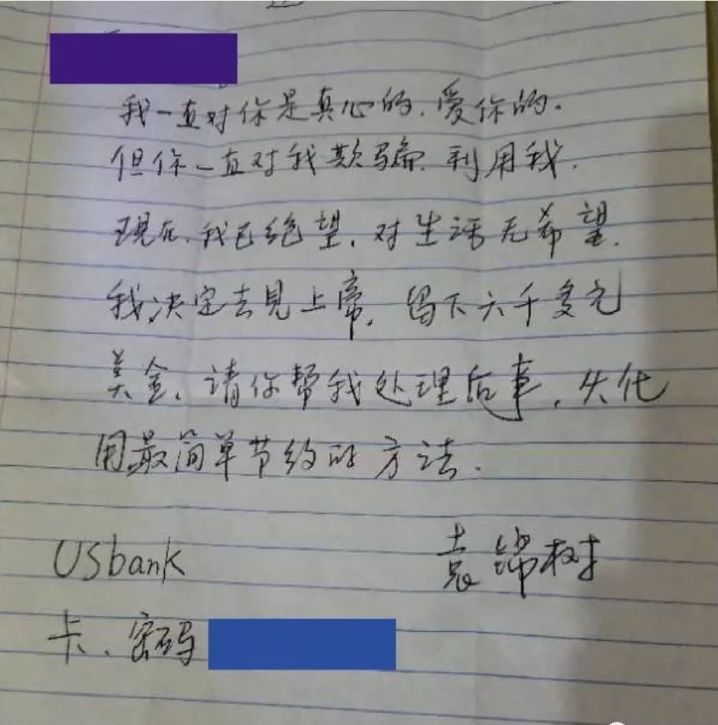 我一直对你是真心的.爱你的.
但你一直对我欺骗.利用我.
现在.我已绝望.对生活无希望.
我决定去見上帝.留下六千多元
美金.请你帮我处理后事.火化
用最简单节约的方法.
USbank
袁锦树
卡、密码